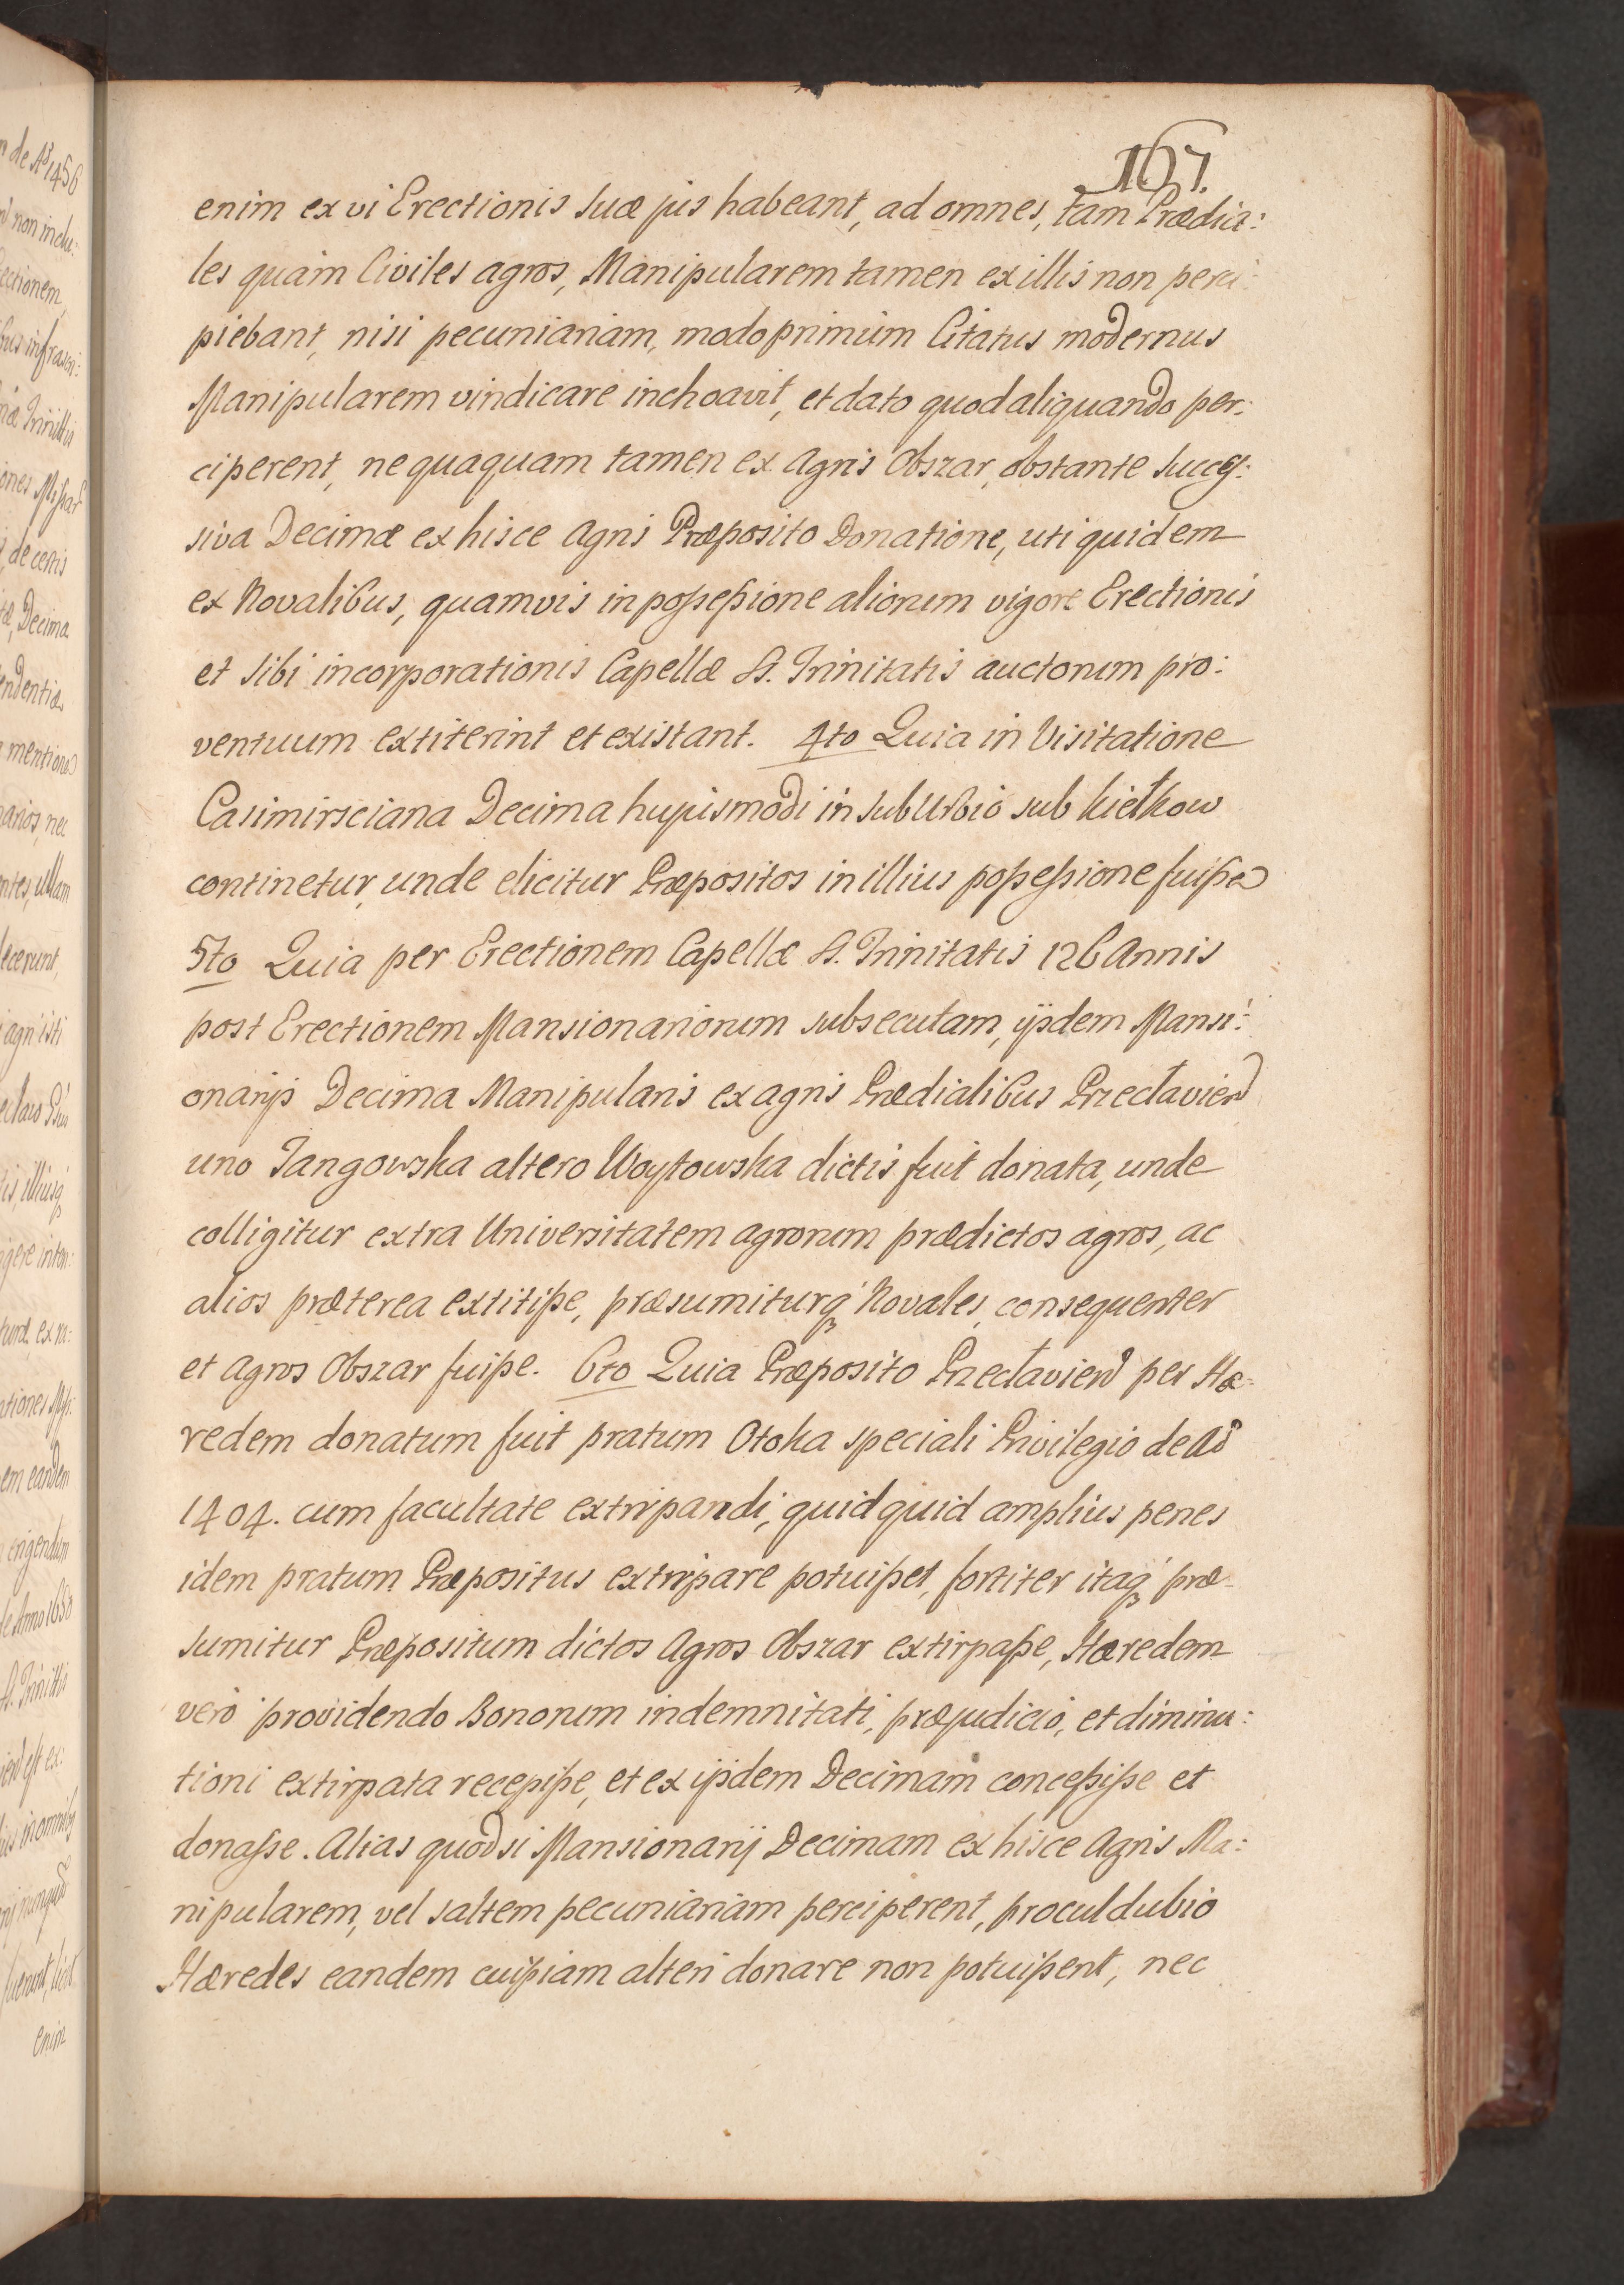 167.
enim ex vi Erectionis suæ jus habeant, ad omnes, tam Prædia:
les quam Civiles agros, Manipularem tamen ex illis non perci:
piebant, nisi pecuniariam, modo primum Citatus modernus
Manipularem vindicare inchoavit, et dato quod aliquando per:
ciperent, nequaquam tamen ex Agris Obszar, obstante succeſ:
siva Decimæ ex hisce Agris Præposito Donatione, uti quidem
ex Novalibus, quamvis in poſseſsione aliorum vigore Erectionis
et sibi incorporationis Capellæ S. Trinitatis auctorum pro:
ventuum extiterint et existant. 4to Quia in Visitatione
Casimirsciana Decima hujusmodi in SubUrbio sub Kiełkow
continetur, unde elicitur Præpositos in illius poſseſsione fuiſse
5to Quia per Erectionem Capellæ S. Trinitatis 126 Annis
post Erectionem Mansionariorum subsecutam, ijsdem Mansi:
onarijs Decima Manipularis ex agris Prædialibus Przecłavien
uno Jangowska altero Woytowska dictis fuit donata, unde
colligitur extra Universitatem agrorum prædictos agros, ac
alios præterea extitiſse, præsumiturq́ Novales, consequenter
et Agros Obszar fuiſse. 6to Quia Præposito Przecłavien per Hæ-
redem donatum fuit pratum Otoka speciali Privilegio de Ao
1404. cum facultate extirpandi, quidquid amplius penes
idem pratum Præpositus extirpare potuiſset, fortiter itaq́ præ-
sumitur Præpositum dictos Agros Obszar extirpaſse, Hæredem
verò providendo Bonorum indemnitati, præjudicio, et diminu:
tioni extirpata recepiſse, et ex ijsdem Decimam conceſsiſse et
donaſse. Alias quodsi Mansionarij Decimam ex hisce Agris Ma:
nipularem, vel saltem pecuniariam perciperent, proculdubio
Hæredes eandem cuipiam alteri donare non potuiſsent, nec